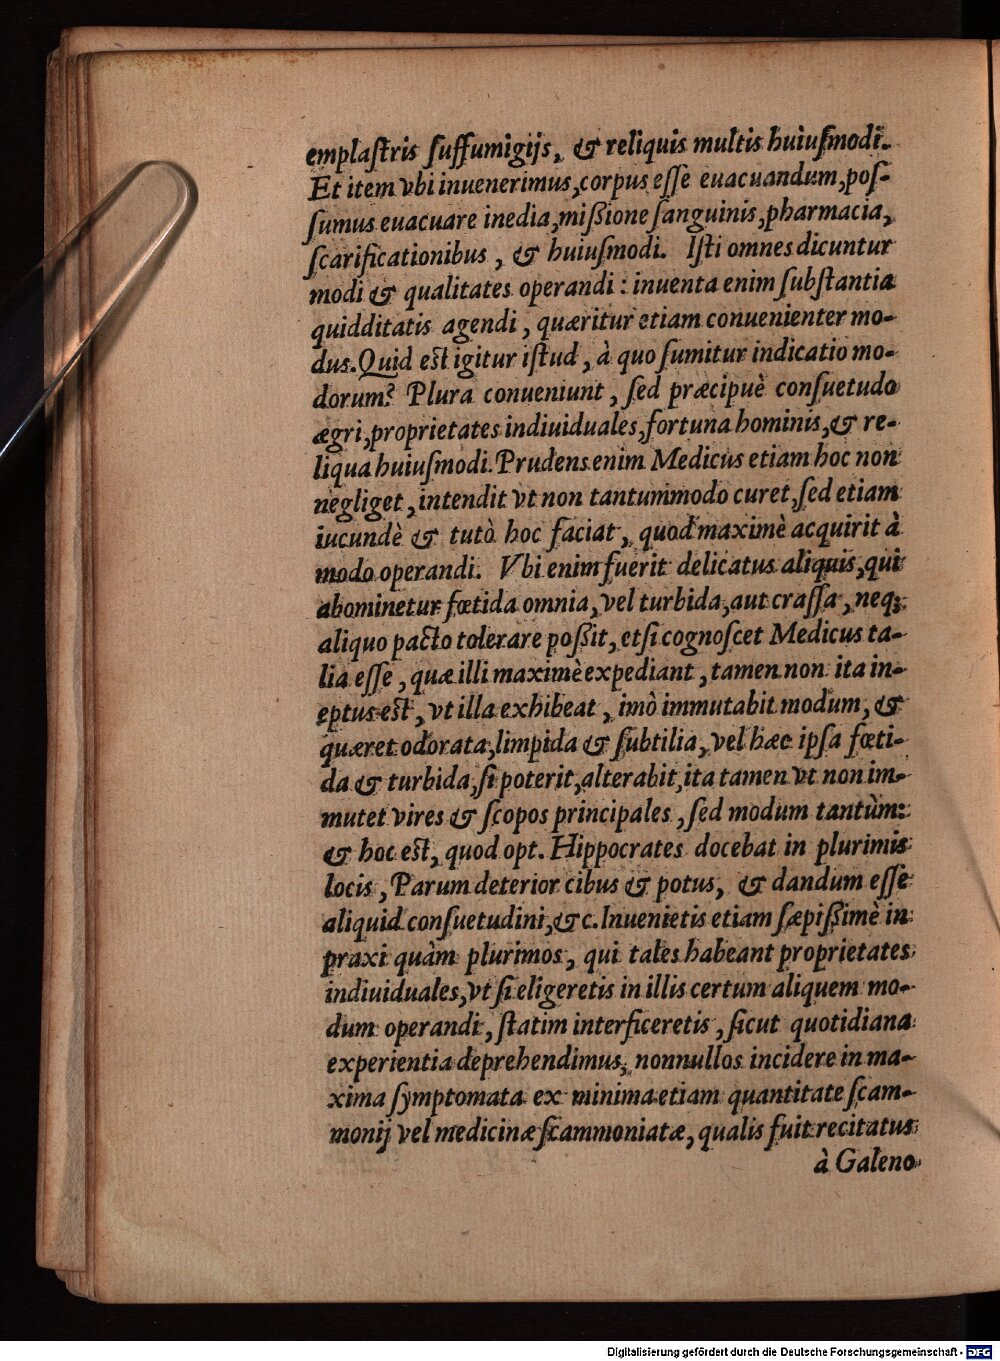 emplaſtris ſuffumigijs, & reliquis multis huiuſmodi.
Et item vbi inuenerimus, corpus eſſe euacuandum, poſ-
ſumus euacuare inedia, miſsione ſanguinis, pharmacia,
ſcarificationibus, & huiuſmodi. Iſti omnes dicuntur
modi & qualitates operandi: inuenta enim ſubſtantia
quidditatis agendi, quæritur etiam conuenienter mo-
dus. Quid eſt igitur iſtud, à quo ſumitur indicatio mo-
dorum? Plura conueniunt, ſed præcipuè conſuetudo
ægri, proprietates indiuiduales, fortuna hominis, & re-
liqua huiuſmodi. Prudens enim Medicus etiam hoc non
negliget, intendit vt non tantummodo curet, ſed etiam
iucundè & tutò hoc faciat, quod maximè acquirit à
modo operandi. Vbi enim fuerit delicatus aliquis, qui
abominetur fœtida omnia, vel turbida, aut craſſa, neq;
aliquo pacto tolerare poſsit, etſi cognoſcet Medicus ta-
lia eſſe, quæ illi maximè expediant, tamen non ita in-
eptus eſt, vt illa exhibeat, imò immutabit modum, &
quæret odorata, limpida & ſubtilia, vel hæc ipſa fœti-
da & turbida, ſi poterit, alterabit, ita tamen vt non im-
mutet vires & ſcopos principales, ſed modum tantùm:
& hoc eſt, quod opt. Hippocrates docebat in plurimis
locis, Parum deterior cibus & potus, & dandum eſſe
aliquid conſuetudini, &c. Inuenietis etiam ſæpiſsimè in
praxi quàm plurimos, qui tales habeant proprietates
indiuiduales, vt ſi eligeretis in illis certum aliquem mo-
dum operandi, ſtatim interficeretis, ſicut quotidiana
experientia deprehendimus, nonnullos incidere in ma-
xima ſymptomata ex minima etiam quantitate ſcam-
monij vel medicinæ ſcammoniatæ, qualis fuit recitatus
à Galeno
Digitalisierung gefördert durch die Deutsche Forschungsgemeinschaft - DFG